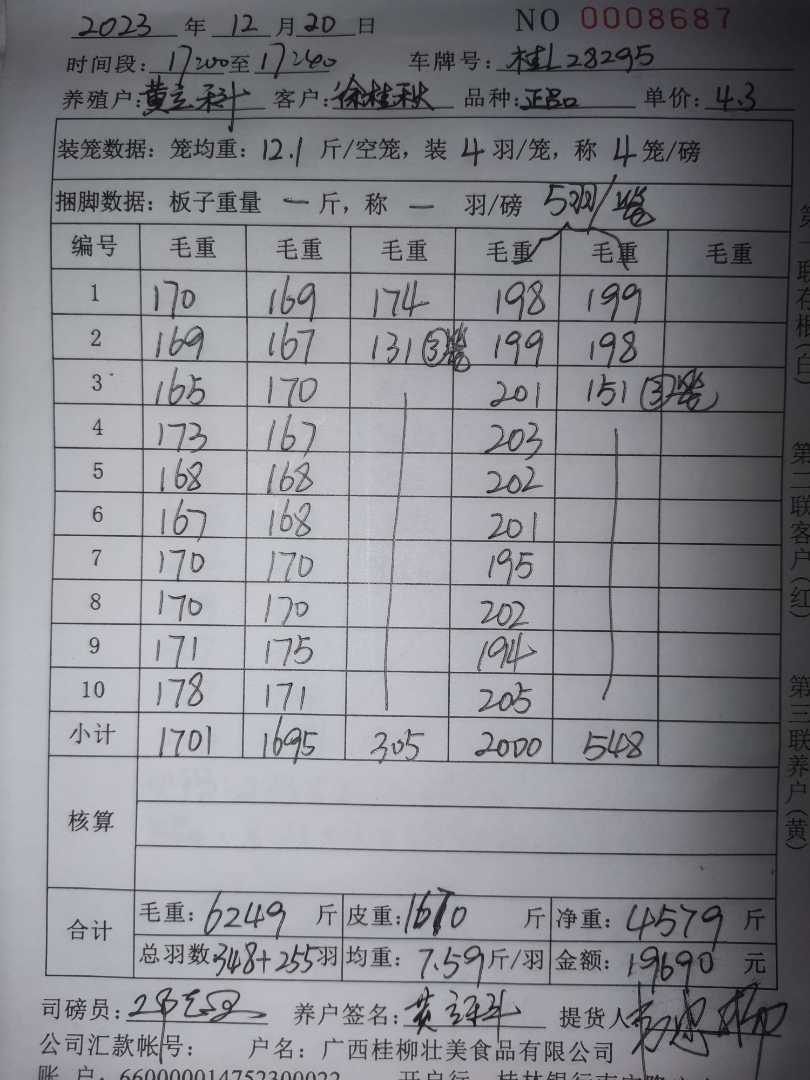 2023 年 12 月 20 日 NO 0008687
时间段: 17:00 至 17:40 车牌号: 桂L28295
养殖户: 黄立科 客户: 徐桂秋 品种: 正品 单价: 4.3
装笼数据: 笼均重: 12.1 斤/空笼, 装 4 羽/笼, 称 4 笼/磅
捆脚数据: 板子重量 一 斤, 称 一 羽/磅 5羽/笼
编号 毛重 毛重 毛重 毛重 毛重 毛重
1 170 169 174 198 199
2 169 167 131 ③笼 199 198
3 165 170 201 151 ③笼
4 173 167 203
5 168 168 202
6 167 168 201
7 170 170 195
8 170 170 202
9 171 175 194
10 178 171 205
小计 1701 1695 305 2000 548
核算
合计 毛重: 6249 斤 皮重: 1670 斤 净重: 4579 斤
总羽数: 348+255 羽 均重: 7.59 斤/羽 金额: 19690 元
司磅员: 养户签名: 黄立科 提货人
公司汇款帐号: 户名: 广西桂柳壮美食品有限公司
账 户: 660000014752300022 开户行
第一联存根(白) 第二联客户(红) 第三联养户(黄)